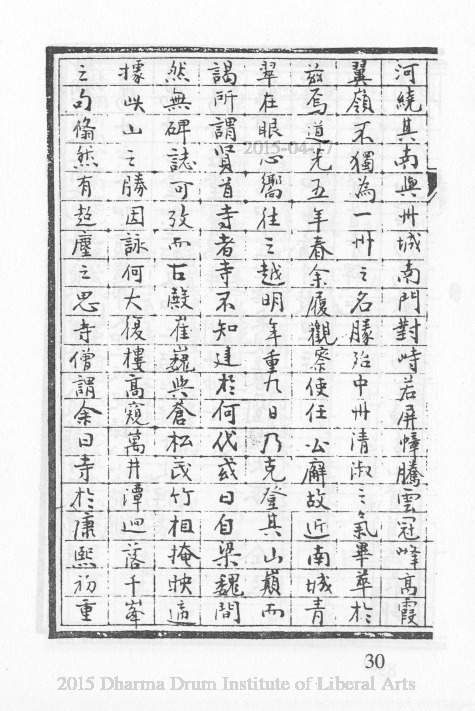 河繞其南與州城南門對峙若屏幛騰雲冠峰高霞
翼嶺不獨為一州之名勝殆中州清淑之氣畢萃於
茲焉道光五年春余履觀察使任公廨故近南城青
翠在眼心嚮往之越明年重九日乃克登其山巔而
謁所謂賢首寺者寺不知建於何代或曰自梁魏間
然無碑誌可攷而古殿崔巍與蒼松
竹相掩映適
據峴山之勝因詠何大復樓高窺萬井潭迴落千峯
之句翛然有超塵之思寺僧謂余曰寺於康熙初重
2015-04-17
30
2015 Dharma Drum Institute of Liberal Arts